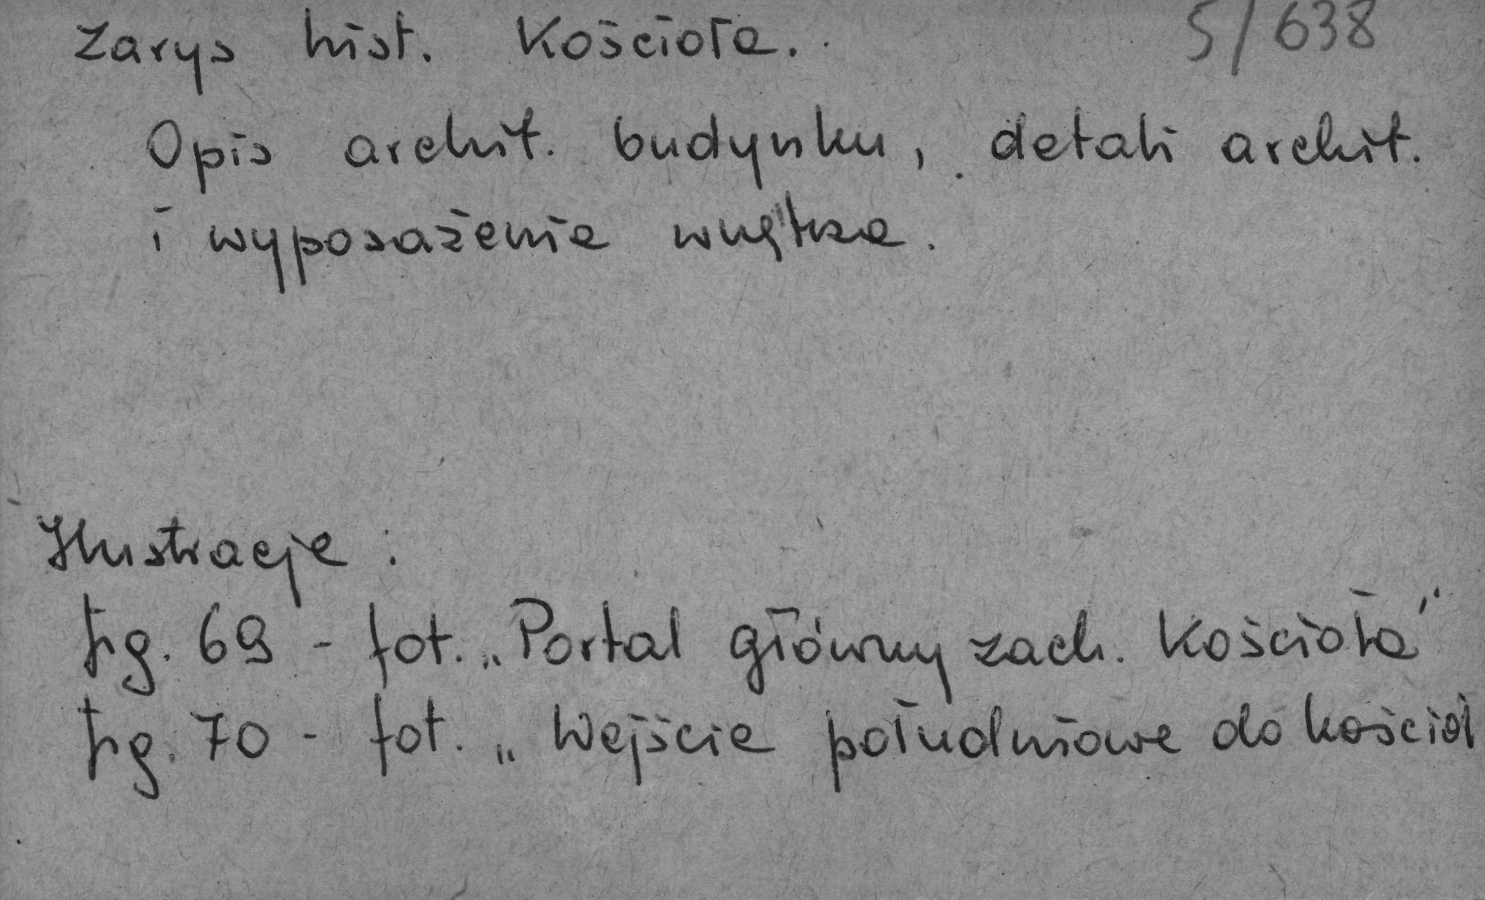 Zarys hist. Kościoła. 5/638
Opis archit. budynku, detali archit.
i wyposażenie wnętrza.
Ilustracje :
fig. 69 - fot. „Portal główny zach. Kościoła"
fig. 70 - fot. „Wejście południowe do kościoł